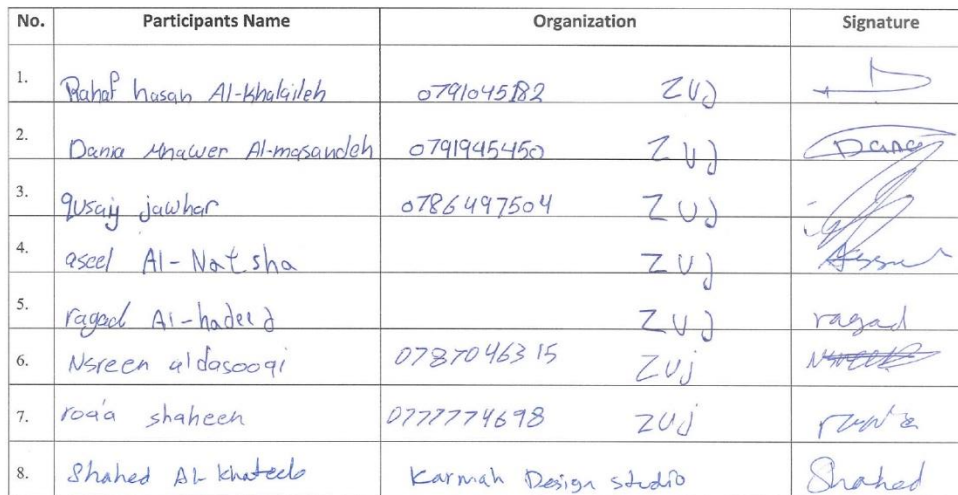 No. Participants Name Organization Signature
1. Rahaf hasan Al-Khalaileh 0791045182 ZUJ
2. Dania Mnawer Al-masandeh 0791945450 ZUJ Dana
3. qusaiy jawhar 0786497504 ZUJ
4. aseel Al-Natsha ZUJ
5. ragad Al-hadeed ZUJ ragad
6. Nsreen aldasooqi 0787046315 ZUj
7. roa'a shaheen 0777774698 ZUj
8. Shahed Al-Khateeb Karmah Design studio Shahed